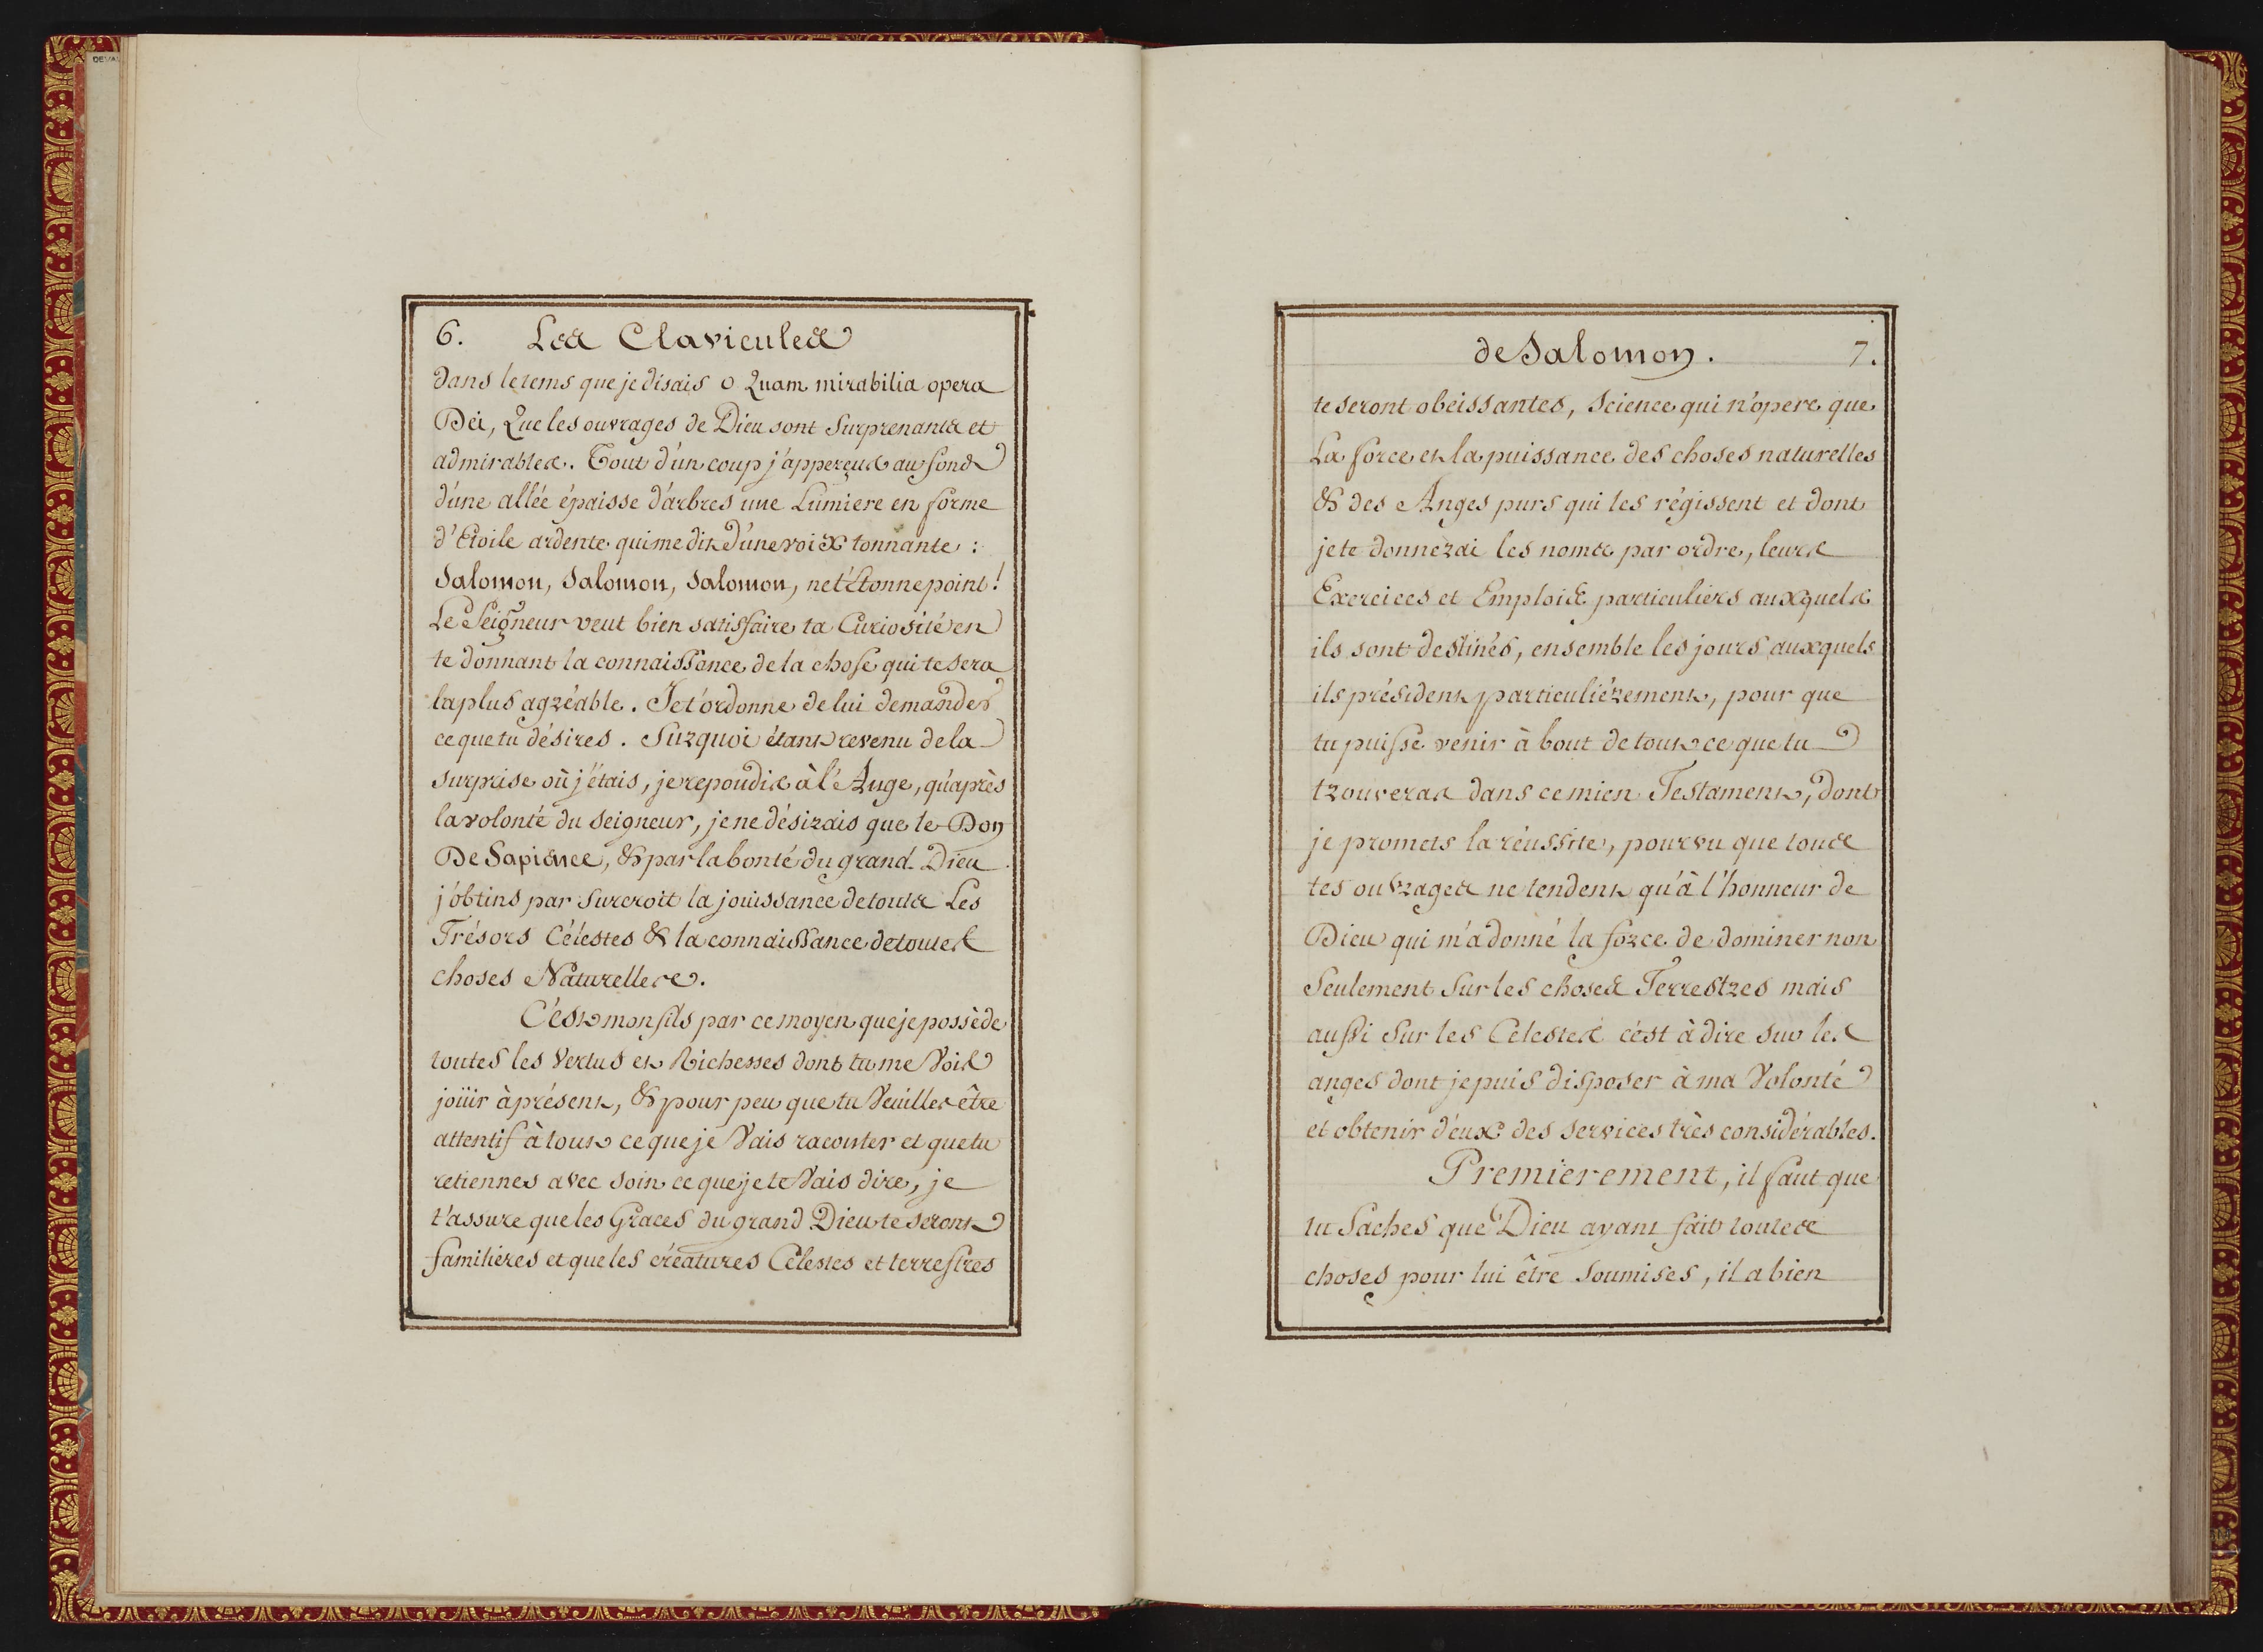 6. Les Clavicules
dans le tems que je disais O Quam mirabilia opera
Dei, Que les ouvrages de Dieu sont surprenants et
admirables. Tout d'un coup j'apperçus au fond
d'une allée épaisse d'arbres une Lumiere en forme
d'Etoile ardente qui me dit d'une voix tonnante :
Salomon, Salomon, Salomon, ne t'Etonne point !
Le Seigneur veut bien satisfaire ta Curiosité en
te donnant la connaissance de la chose qui te sera
la plus agréable. Je t'ordonne de lui demander
ce que tu désires. Surquoi étant revenu de la
surprise où j'étais, je repondis à l'Ange, qu'après
la volonté du Seigneur, je ne désirais que le Don
De Sapience, & par la bonté du grand Dieu
j'obtins par surcroit la jouissance de touts Les
Trésors Célestes & la connaissance de toutes
choses Naturelles.
C'est mon fils par ce moyen que je possède
toutes les Vertus et Richesses dont tu me Vois
joüir à présent, & pour peu que tu Veuilles être
attentif à tout ce que je Vais raconter et que tu
retiennes avec soin ce que je te Vais dire, je
t'assure que les Graces du grand Dieu te seront
familiéres et que les créatures Célestes et terrestres
de Salomon. 7.
te seront obeissantes, Science qui n'opere que
La force et la puissance des choses naturelles
& des Anges purs qui les régissent et dont
je te donnerai les noms par ordre, leurs
Exercices et Emplois particuliers auxquels
ils sont destinés, ensemble les jours auxquels
ils président particuliérement, pour que
tu puisse venir à bout de tout ce que tu
trouveras dans ce mien Testament, dont
je promets la réussite, pourvu que touts
tes ouvrages ne tendent qu'à l'honneur de
Dieu qui m'a donné la force de dominer non
Seulement Sur les choses Terrestres mais
aussi Sur les Celestes c'est à dire sur les
anges dont je puis disposer à ma Volonté
et obtenir d'eux des services très considérables.
Premierement, il faut que
tu Saches que Dieu ayant fait toutes
choses pour lui être Soumises, il a bien